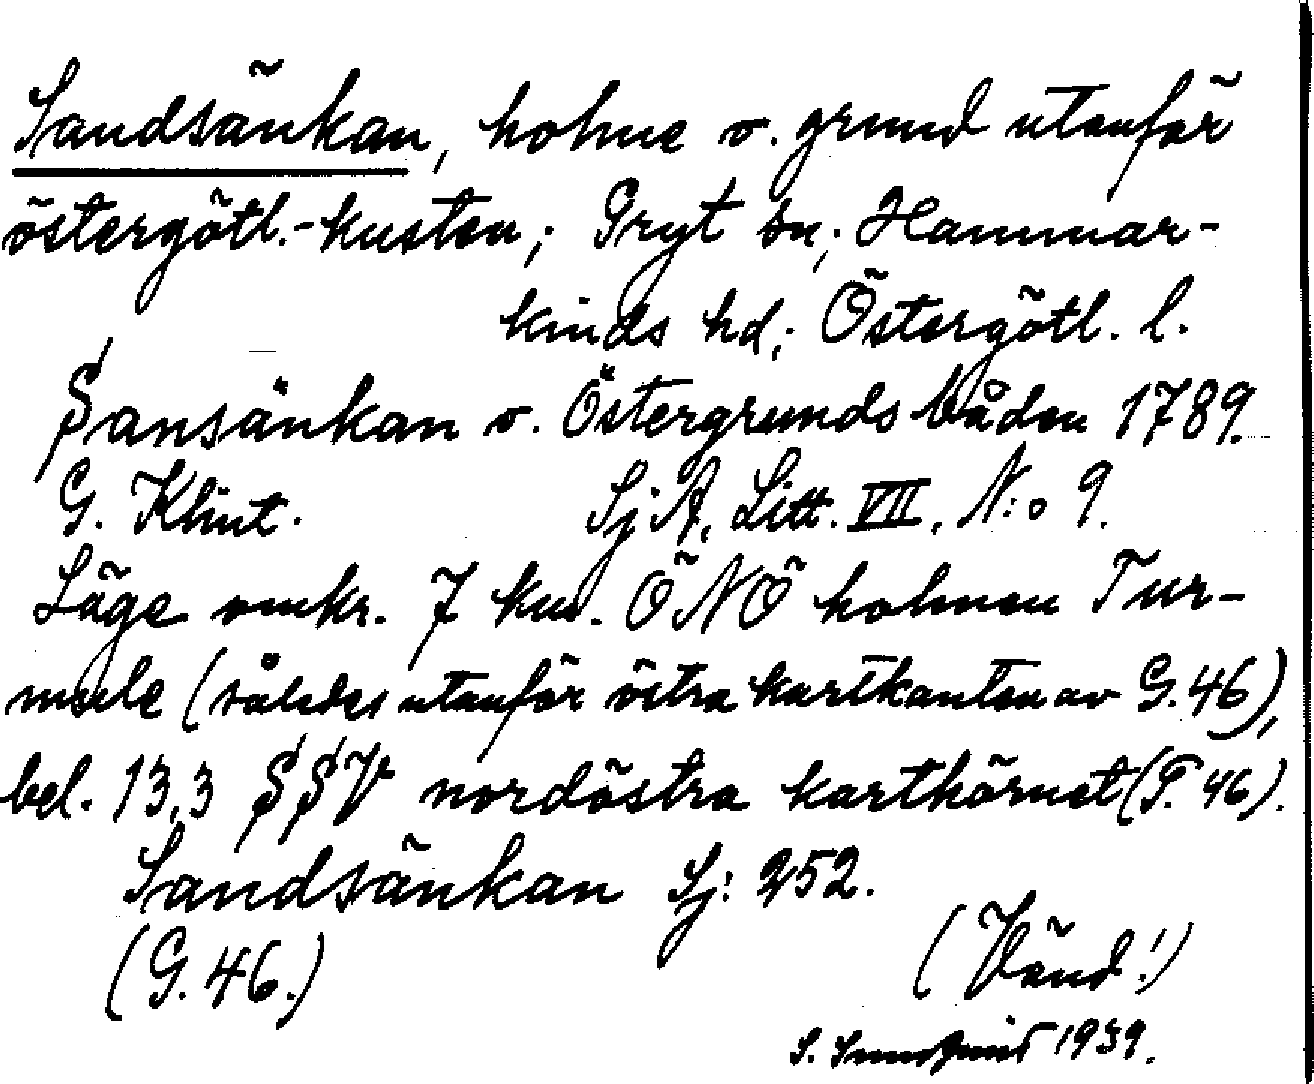 Sandsänkan, holme o. grund utanför
östergötl.-kusten; Gryt sn; Hammar-
kinds hd; Östergötl. l.
Sansänkan o. Östergrundsbåden 1789.
G. Klint. SjA, Litt. VII, N:o 9.
Läge omkr. 7 km. ÖNÖ holmen Tur-
mule (således utanför östra kartkanten av G.46),
bel. 13,3 SSV nordöstra karthörnet (G. 46).
Sandsänkan Sj: 252.
(G. 46.)
(Vänd!)
S. 1939.